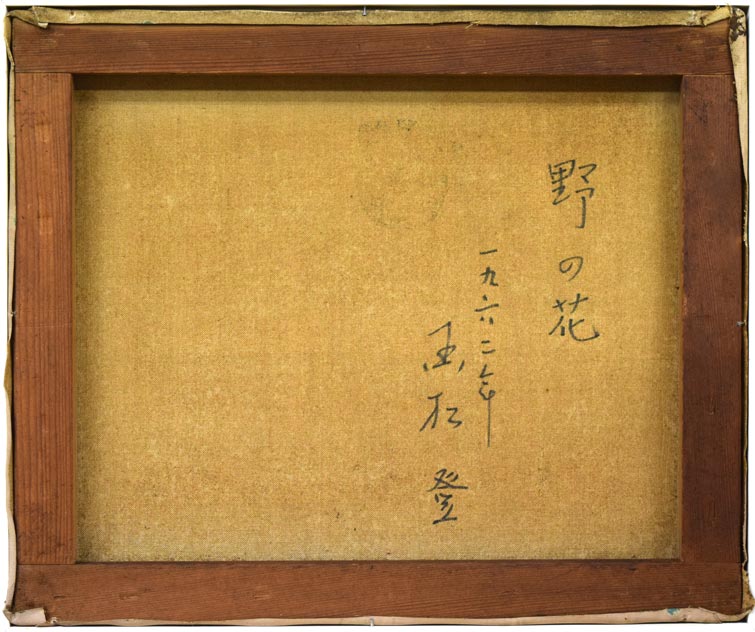 野の花
一九六二年
国松登